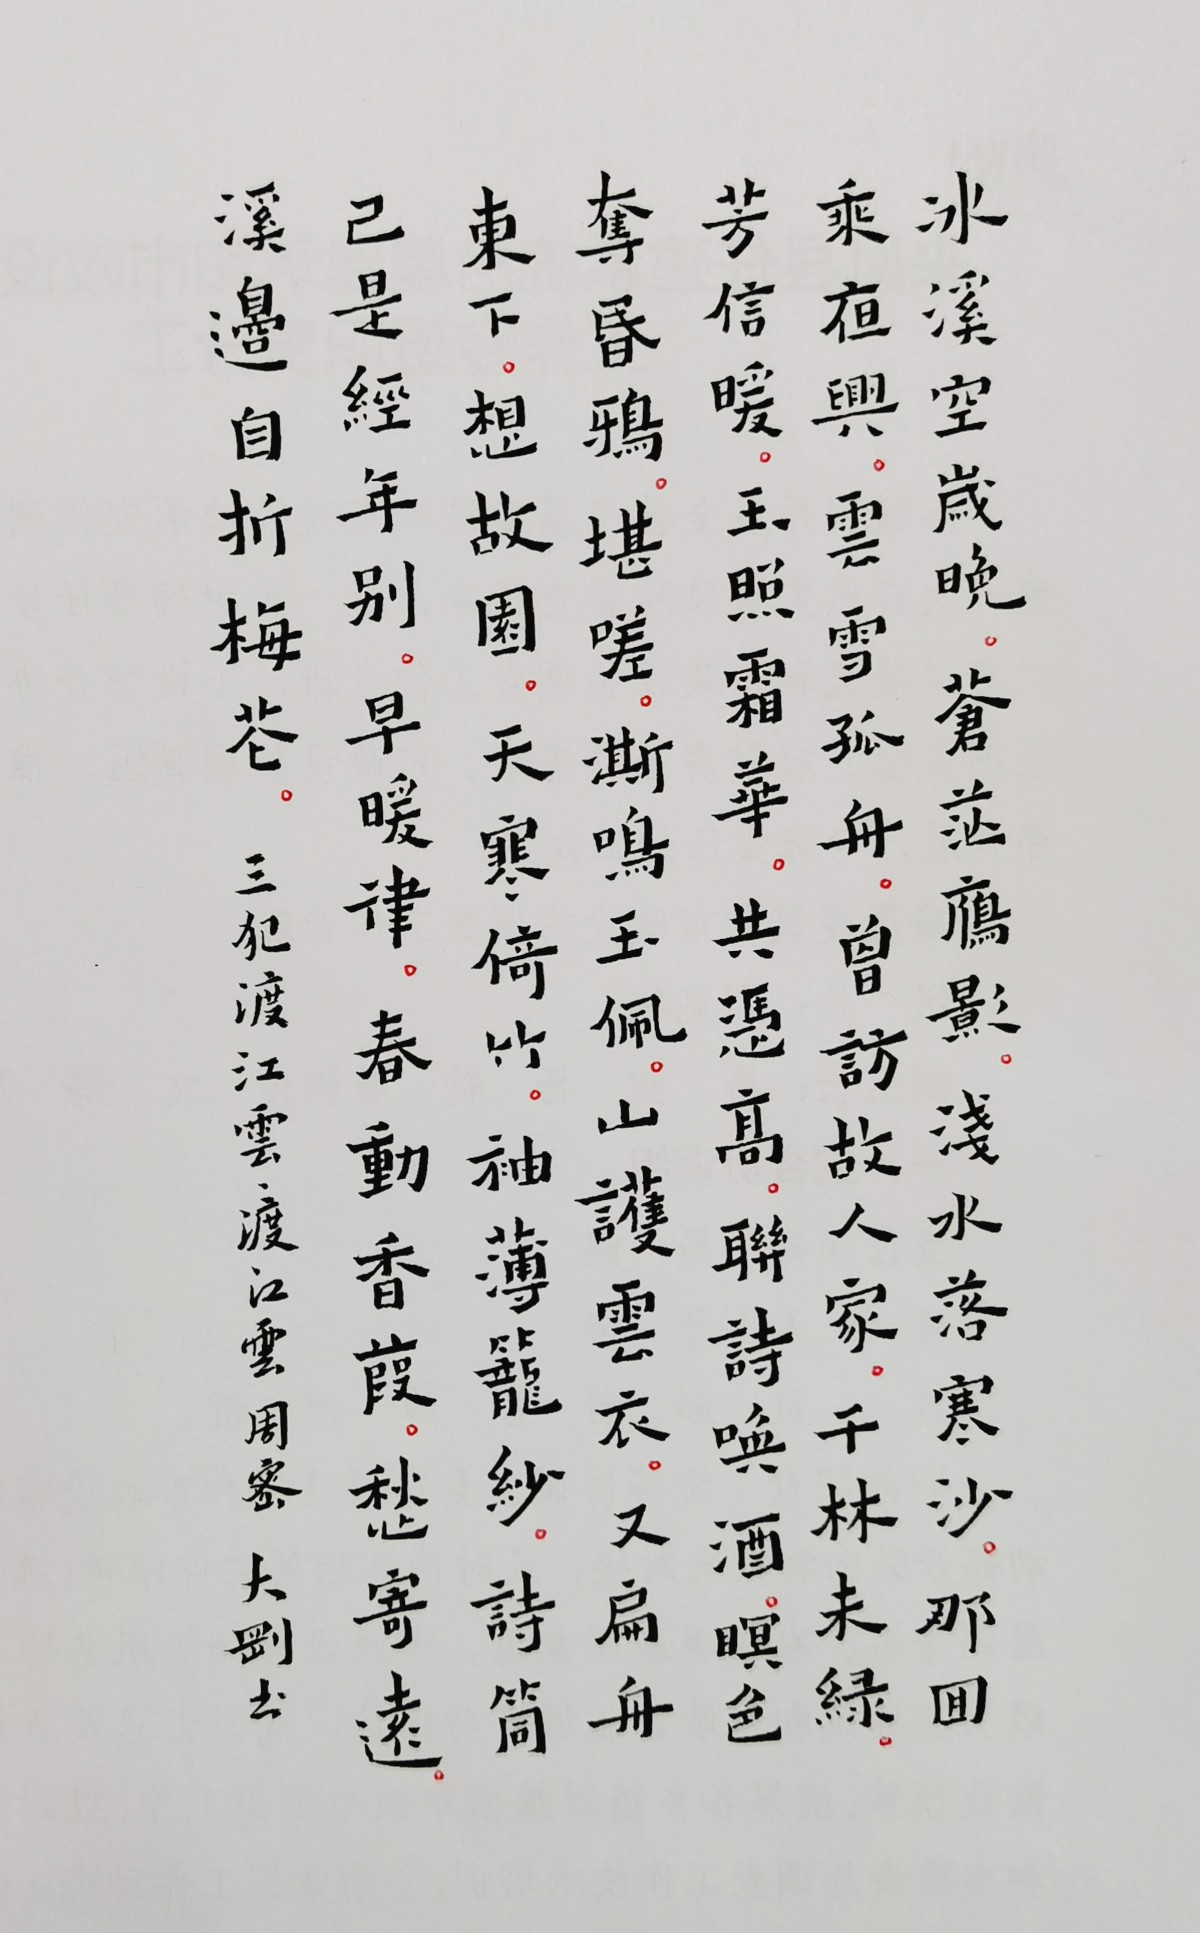 冰溪空歲晚。蒼茫鴈影。淺水落寒沙。那回
乘夜興。雲雪孤舟。曾訪故人家。千林未緑。
芳信暖。玉照霜華。共憑高。聯詩喚酒。暝色
奪昏鴉。堪嗟。澌鳴玉佩。山護雲衣。又扁舟
東下。想故園。天寒倚竹。袖薄籠紗。詩筒
已是經年别。早暖律。春動香葭。愁寄遠。
溪邊自折梅花。三犯渡江雲·渡江雲周密 大剛书